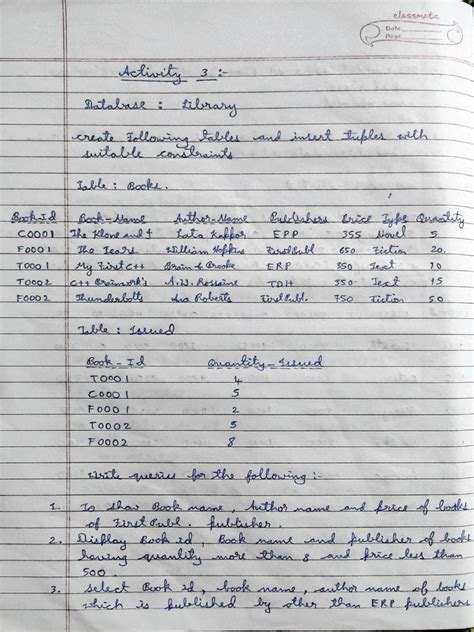 classmate
Date
Page
Activity 3 :-
Database : Library
create Following tables and insert tuples with
suitable constraints
Table : Books.
Book-Id Book-Name Author-Name Publishers Price Type Quantity
C0001 The Klone and I Lata Kappor EPP 355 Novel 5
F0001 The Tears William Hopkins First Publ. 650 Fiction 20
T0001 My First C++ Brain & Brooke ERP 350 Text 10
T0002 C++ Brainwork's A.W. Rossaine TDH 350 Text 15
F0002 Thunderbolts Ana Roberts First Publ. 750 Fiction 50
Table : Issued
Book-Id Quantity-Issued
T0001 4
C0001 5
F0001 2
T0002 5
F0002 8
Write queries for the following :-
1. To show Book name, Author name and price of books
of First Publ. publisher.
2. Display Book id, Book name and publisher of books
having quantity more than 8 and price less than
500.
3. select Book id, book name, author name of books
which is published by other than ERP publishers